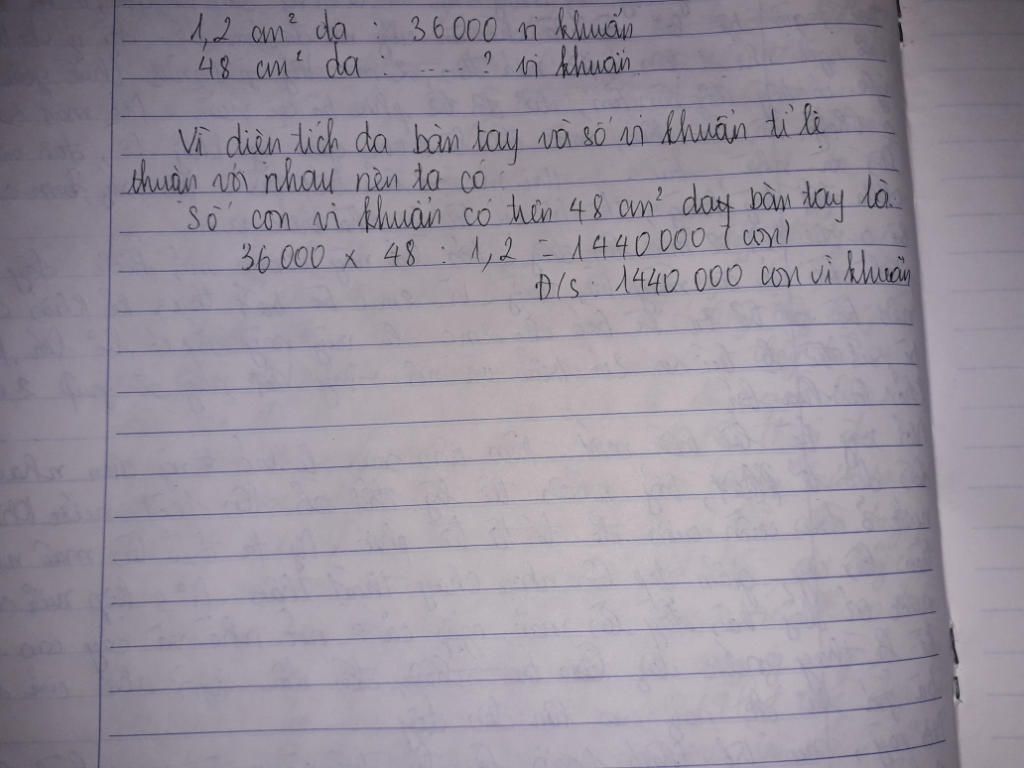 1,2 cm² da : 36000 vi khuẩn
48 cm² da : .....? vi khuẩn
Vì diện tích da bàn tay và số vi khuẩn tỉ lệ
thuận với nhau nên ta có
Số con vi khuẩn có trên 48 cm² day bàn tay là
36000 x 48 : 1,2 = 1440000 (con)
Đ/s : 1440 000 con vi khuẩn